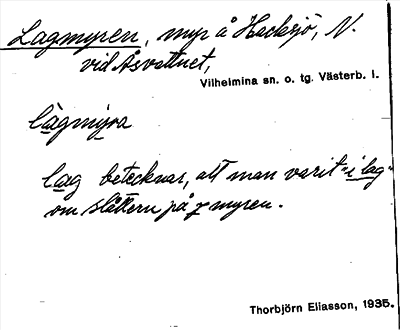 Lagmyren, myr å Hacksjö, N.
vid Åsvattnet,
Vilhelmina sn. o. tg. Västerb. l.
lagmyra
lag betecknar, att man varit "i lag"
om slåttern på myren.
Thorbjörn Eliasson, 1935.